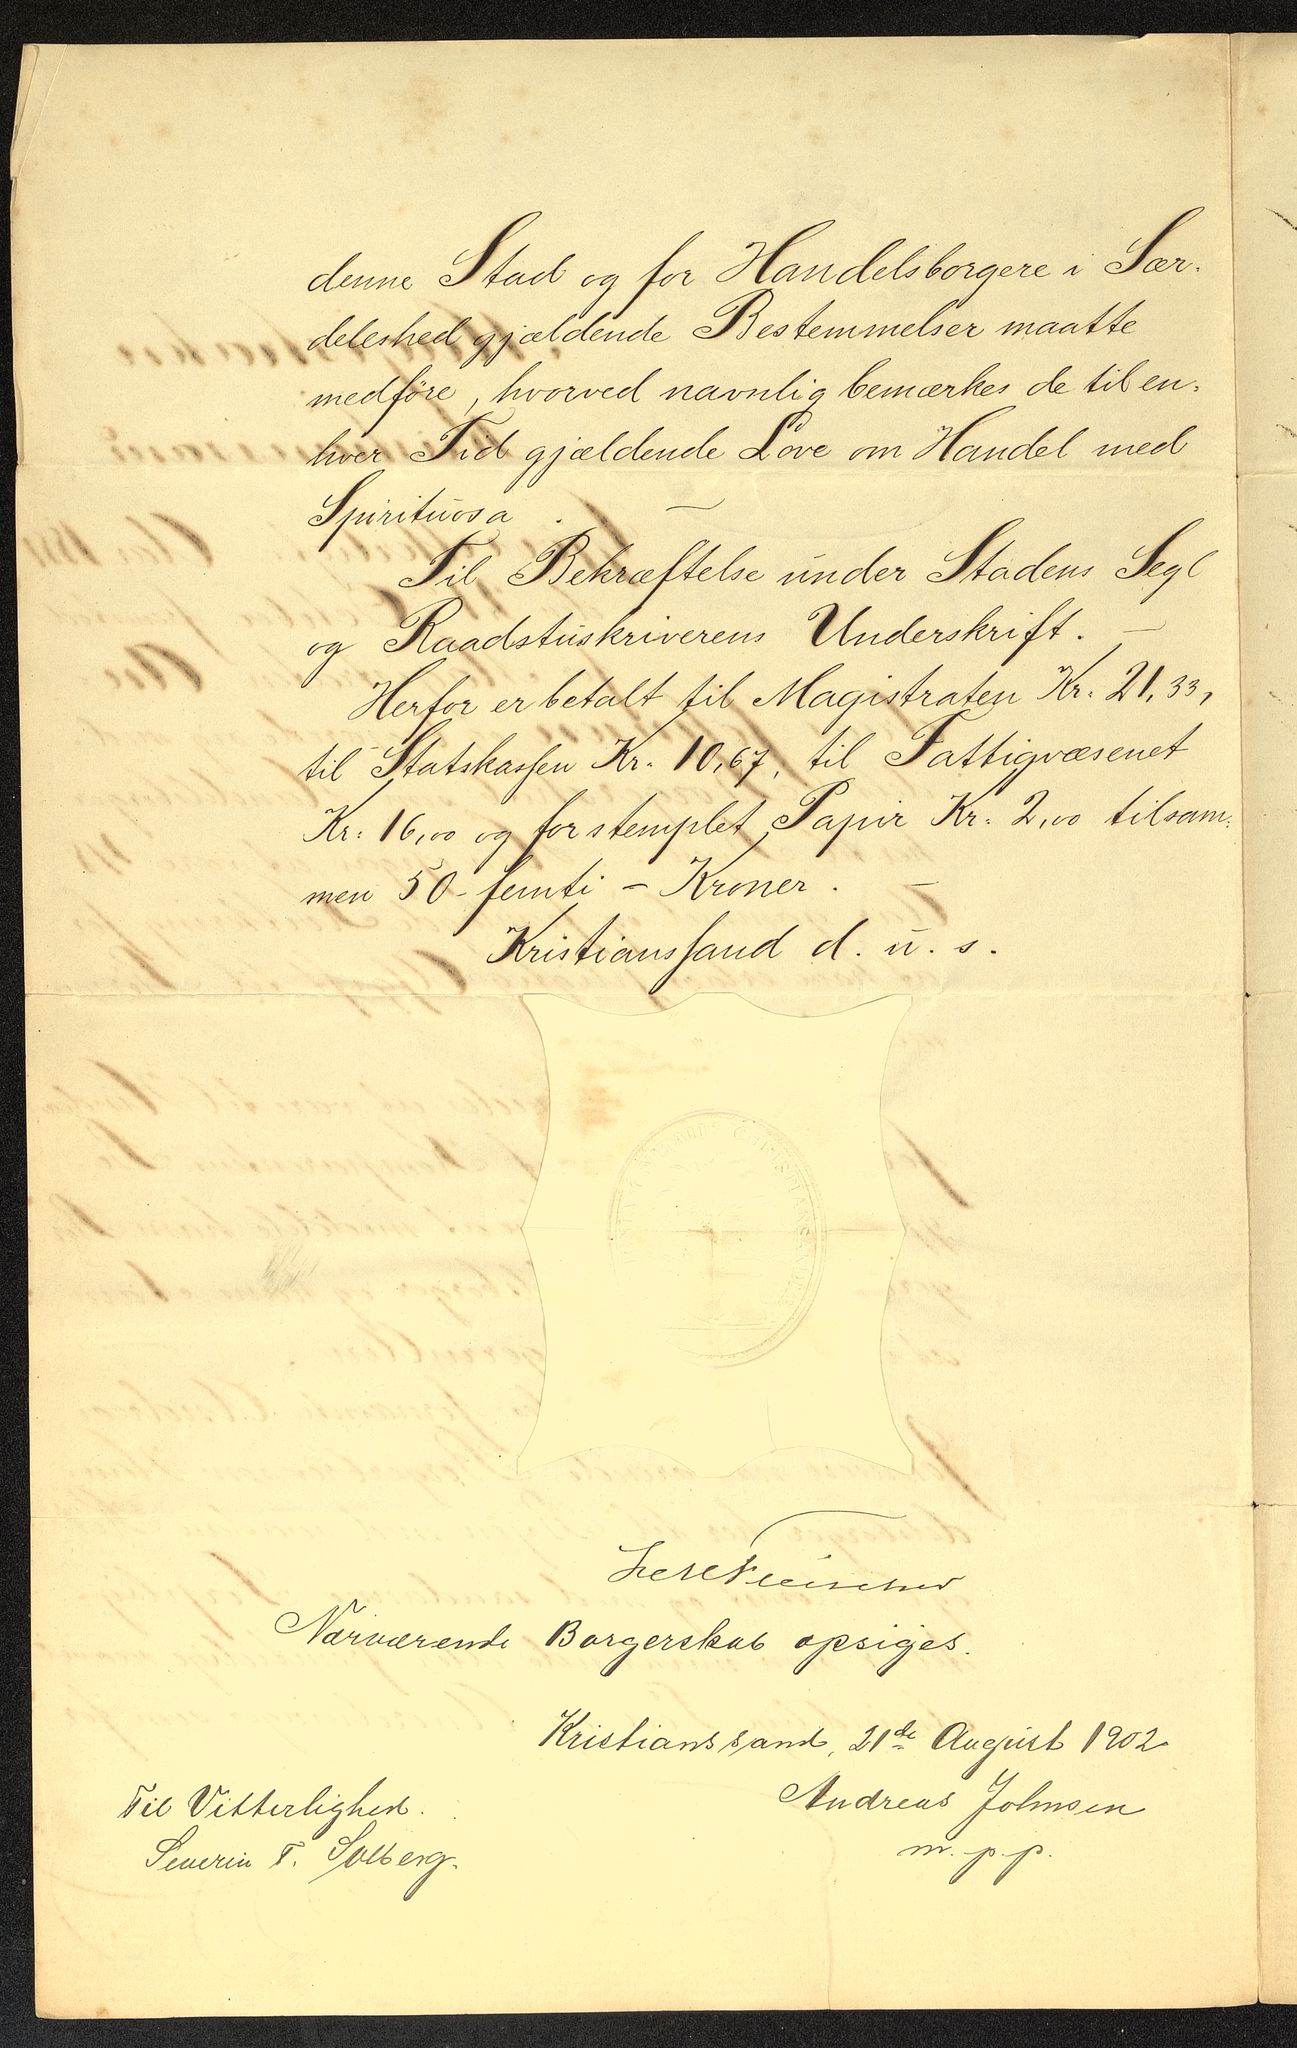 denne Stad og for Handelsborgere i Sær-
deleshed gjældende Bestemmelser maatte
medføre, hvorved navnlig bemærkes de til en-
hver Tid gjældende Love om Handel med
Spirituosa. —
Til Bekræftelse under Stadens Segl
og Raadstuskriverens Underskrift. —
Herfor er betalt til Magistraten Kr. 21,33,
til Statskassen Kr. 10,67, til Fattigvæsenet
Kr. 16,00 og for stemplet Papir Kr. 2,00 tilsam-
men 50 - femti - Kroner. —
Kristianssand d. u. s.
Nærværende Borgerskab opsiges.
Kristianssand, 21de August 1902
Til Vitterlighed.
Andreas Johnsen
Severin T. Solberg.
m. p. p.